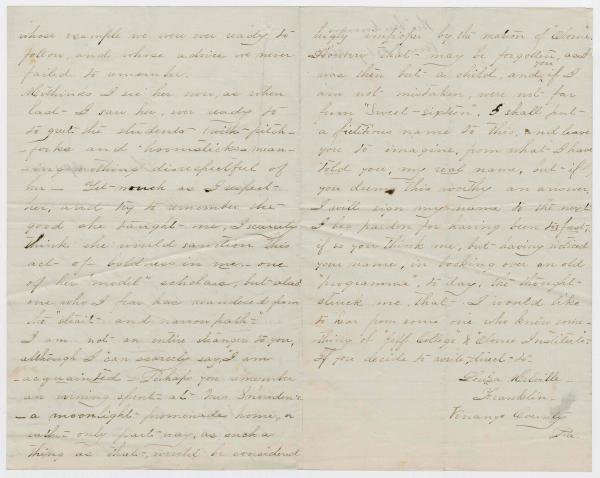 whose example we were ever ready to
follow, and whose advice we never
failed to remember.
Methinks I see her now, as when
last I saw her, ever ready to
to greet the students (with pitch-
-forks and broomsticks - mean-
-ing nothing disrespectful of
her - Yet - much as I respect
her, and try to remember the
good she taught me, I scarcely
think she would sanction this
act of boldness in me - one
of her "model" scholars, but alas
one who I fear has wandered from
the "strait - and narrow path -"
I am not an entire stranger to you,
although I can scarcely say, I am
acquainted - Perhaps you remember
an evening spent at Mrs
- a moonlight promenade home, or
rather only part way, as such a
thing as that, would be considered
highly improper by the matron of "Olome
However that may be forgotten, as I
was then but a child, and, if I
am not mistaken, you were not far
from "Sweet-sixteen". I shall put
a fictitious name to this, and leave
you to imagine, from what I have
told you, my real name, but if
you deem this worthy an answer,
I will sign my name to the next
I beg pardon for having been so fast,
if so you think me, but having noticed
your name, in looking over an old
"programme", to day, the thought
struck me, that I would like
to hear from some one who knew some-
thing of "Jeff College" & Olome Institute.
If you decide to write, direct to -
Louisa Melville -
Franklin -
Venango County
Pa